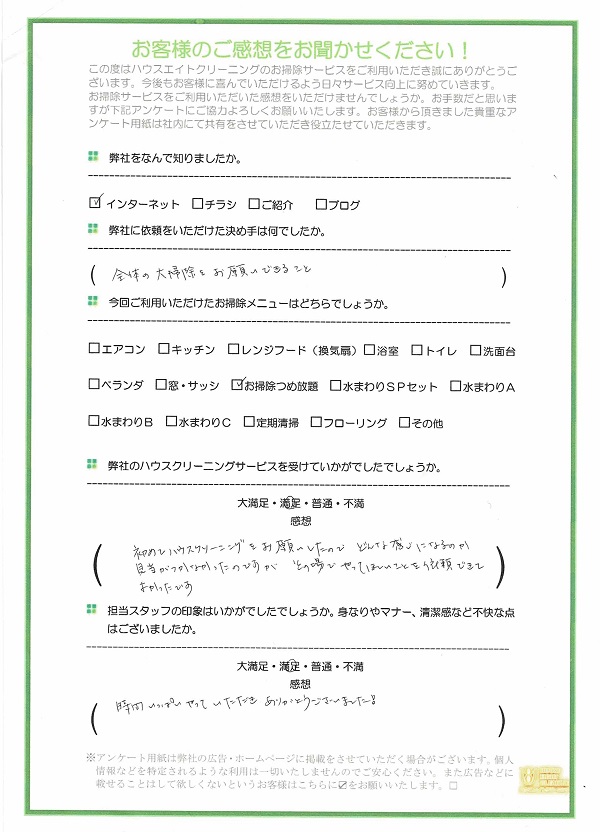 お客様のご感想をお聞かせください！
この度はハウスエイトクリーニングのお掃除サービスをご利用いただき誠にありがとうご
ざいます。今後もお客様に喜んでいただけるよう日々サービス向上に努めていきます。
お掃除サービスをご利用いただいた感想をいただけませんでしょうか。お手数だと思いま
すが下記アンケートにご協力よろしくお願いいたします。お客様から頂きました貴重なア
ンケート用紙は社内にて共有をさせていただき役立たせていただきます。
弊社をなんで知りましたか。
☑インターネット □チラシ □ご紹介 □ブログ
弊社に依頼をいただけた決め手は何でしたか。
( 全体の大掃除をお願いできること )
今回ご利用いただけたお掃除メニューはどちらでしょうか。
□エアコン □キッチン □レンジフード（換気扇）□浴室 □トイレ □洗面台
□ベランダ □窓・サッシ ☑お掃除つめ放題 □水まわりＳＰセット □水まわりＡ
□水まわりＢ □水まわりＣ □定期清掃 □フローリング □その他
弊社のハウスクリーニングサービスを受けていかがでしたでしょうか。
大満足・満足・普通・不満
感想
( 初めてハウスクリーニングをお願いしたので どんな感じになるのか
見当がつかなかったのですが その場でやってほしいことを依頼できて
よかったです )
担当スタッフの印象はいかがでしたでしょうか。身なりやマナー、清潔感など不快な点
はございましたか。
大満足・満足・普通・不満
感想
( 時間いっぱいやっていただき ありがとうございました! )
※アンケート用紙は弊社の広告・ホームページに掲載をさせていただく場合がございます。個人
情報などを特定されるような利用は一切いたしませんのでご安心ください。また広告などに
載せることはして欲しくないというお客様はこちらに☑をお願いいたします。□